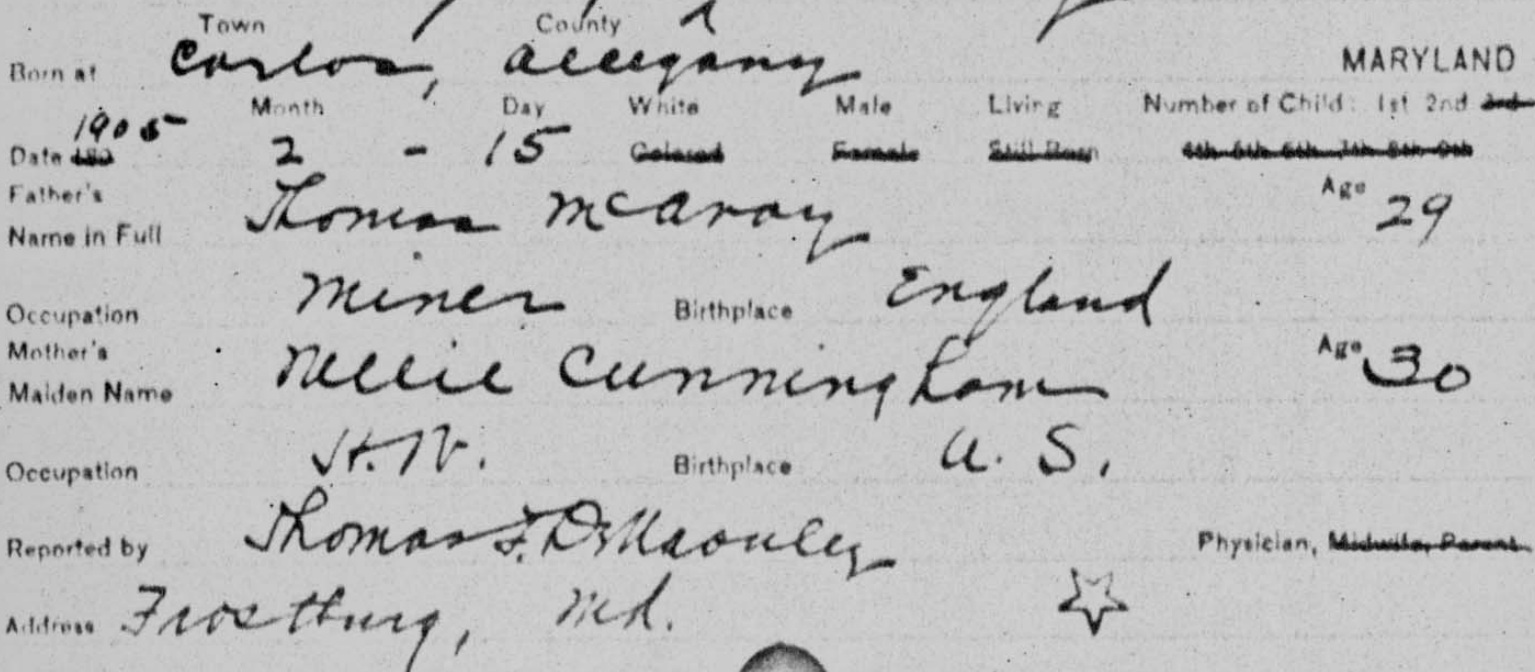 Town County
Born at Carlos, Allegany MARYLAND
Month Day White Male Living Number of Child: 1st 2nd 3rd
1905
Date 189 2 - 15 Colored Female Still Born 4th 5th 6th 7th 8th 9th
Father's Age 29
Name in Full Thomas McAvoy
Occupation Miner Birthplace England
Mother's Age 30
Maiden Name Nellie Cunningham
Occupation H.W. Birthplace U. S.
Reported by Thomas F. Physician, Midwife, Parent
Address Frostburg, Md.